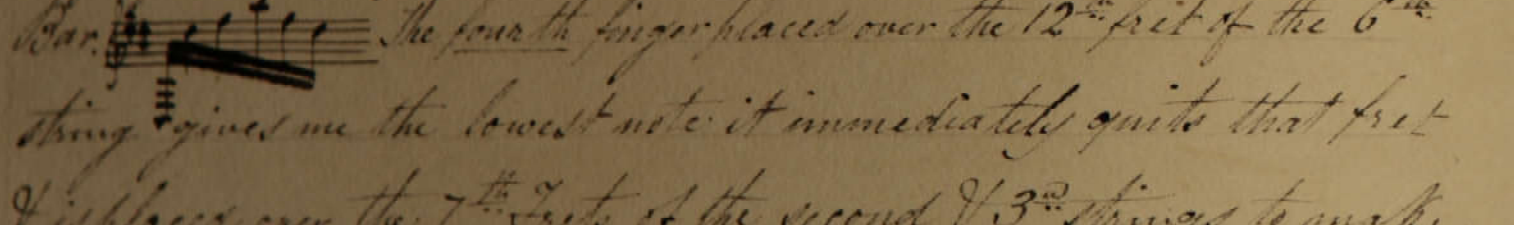 Bar. The fourth finger placed over the 12th fret of the 6th
string gives me the lowest note it immediately quits that fret
& is placed over the 7th Frets of the second & 3rd strings to make